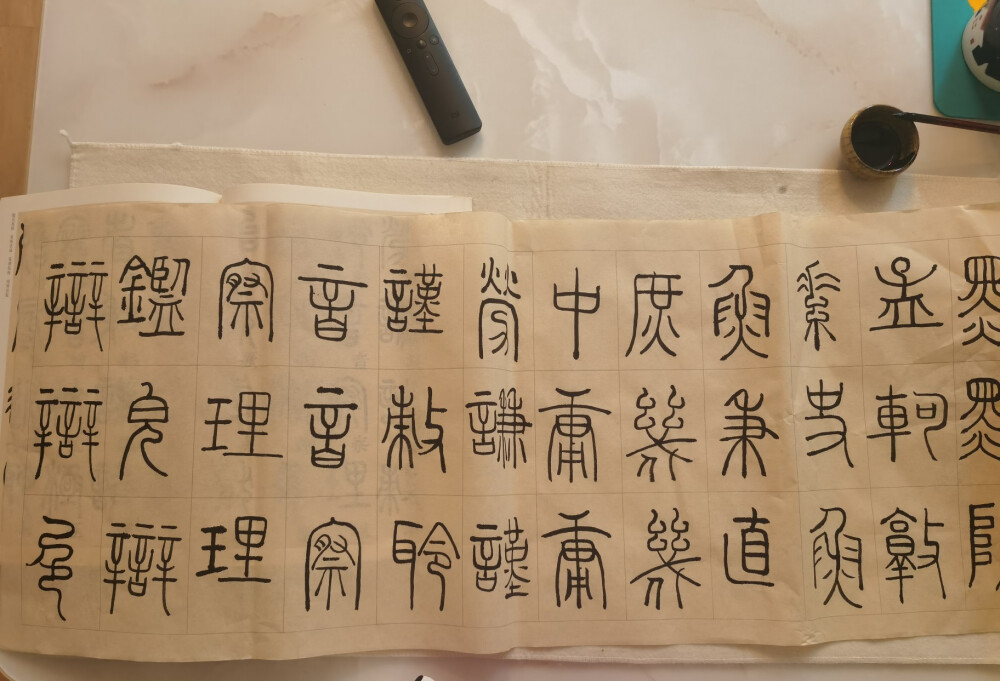 孟軻敦
素史魚
魚秉直
庶幾幾
中庸庸
勞謙謹
謹敕聆
音音察
察理理
鑑皃辯
辯辯色